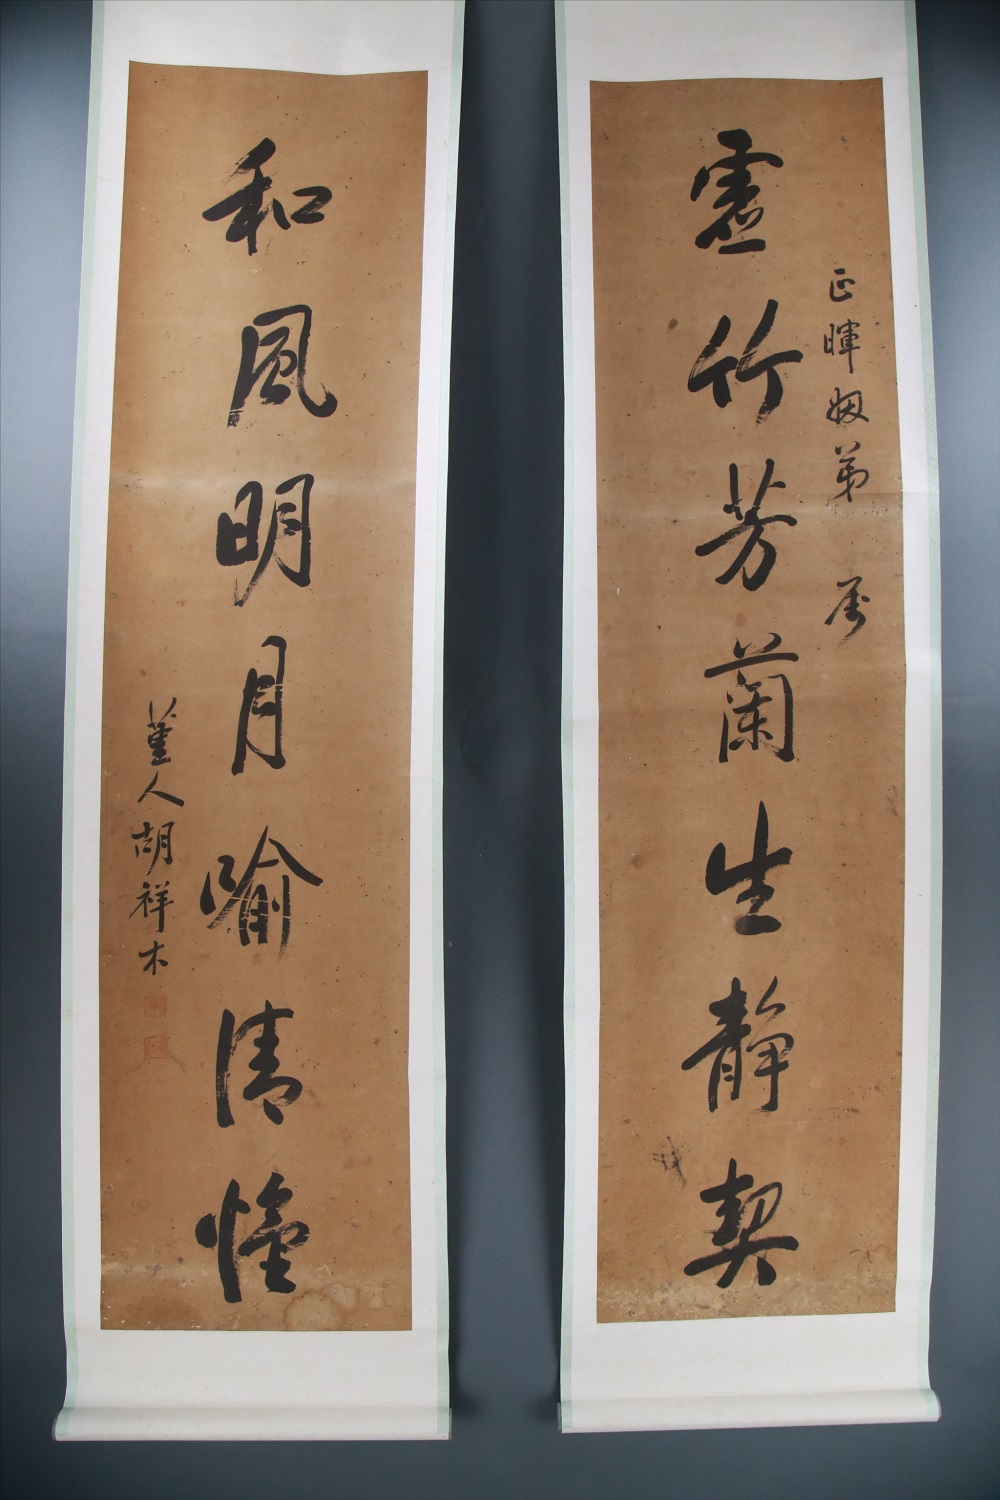 虛竹芳蘭生靜契
正暉姻弟 屬
和風明月喻清懷
菫人胡祥木